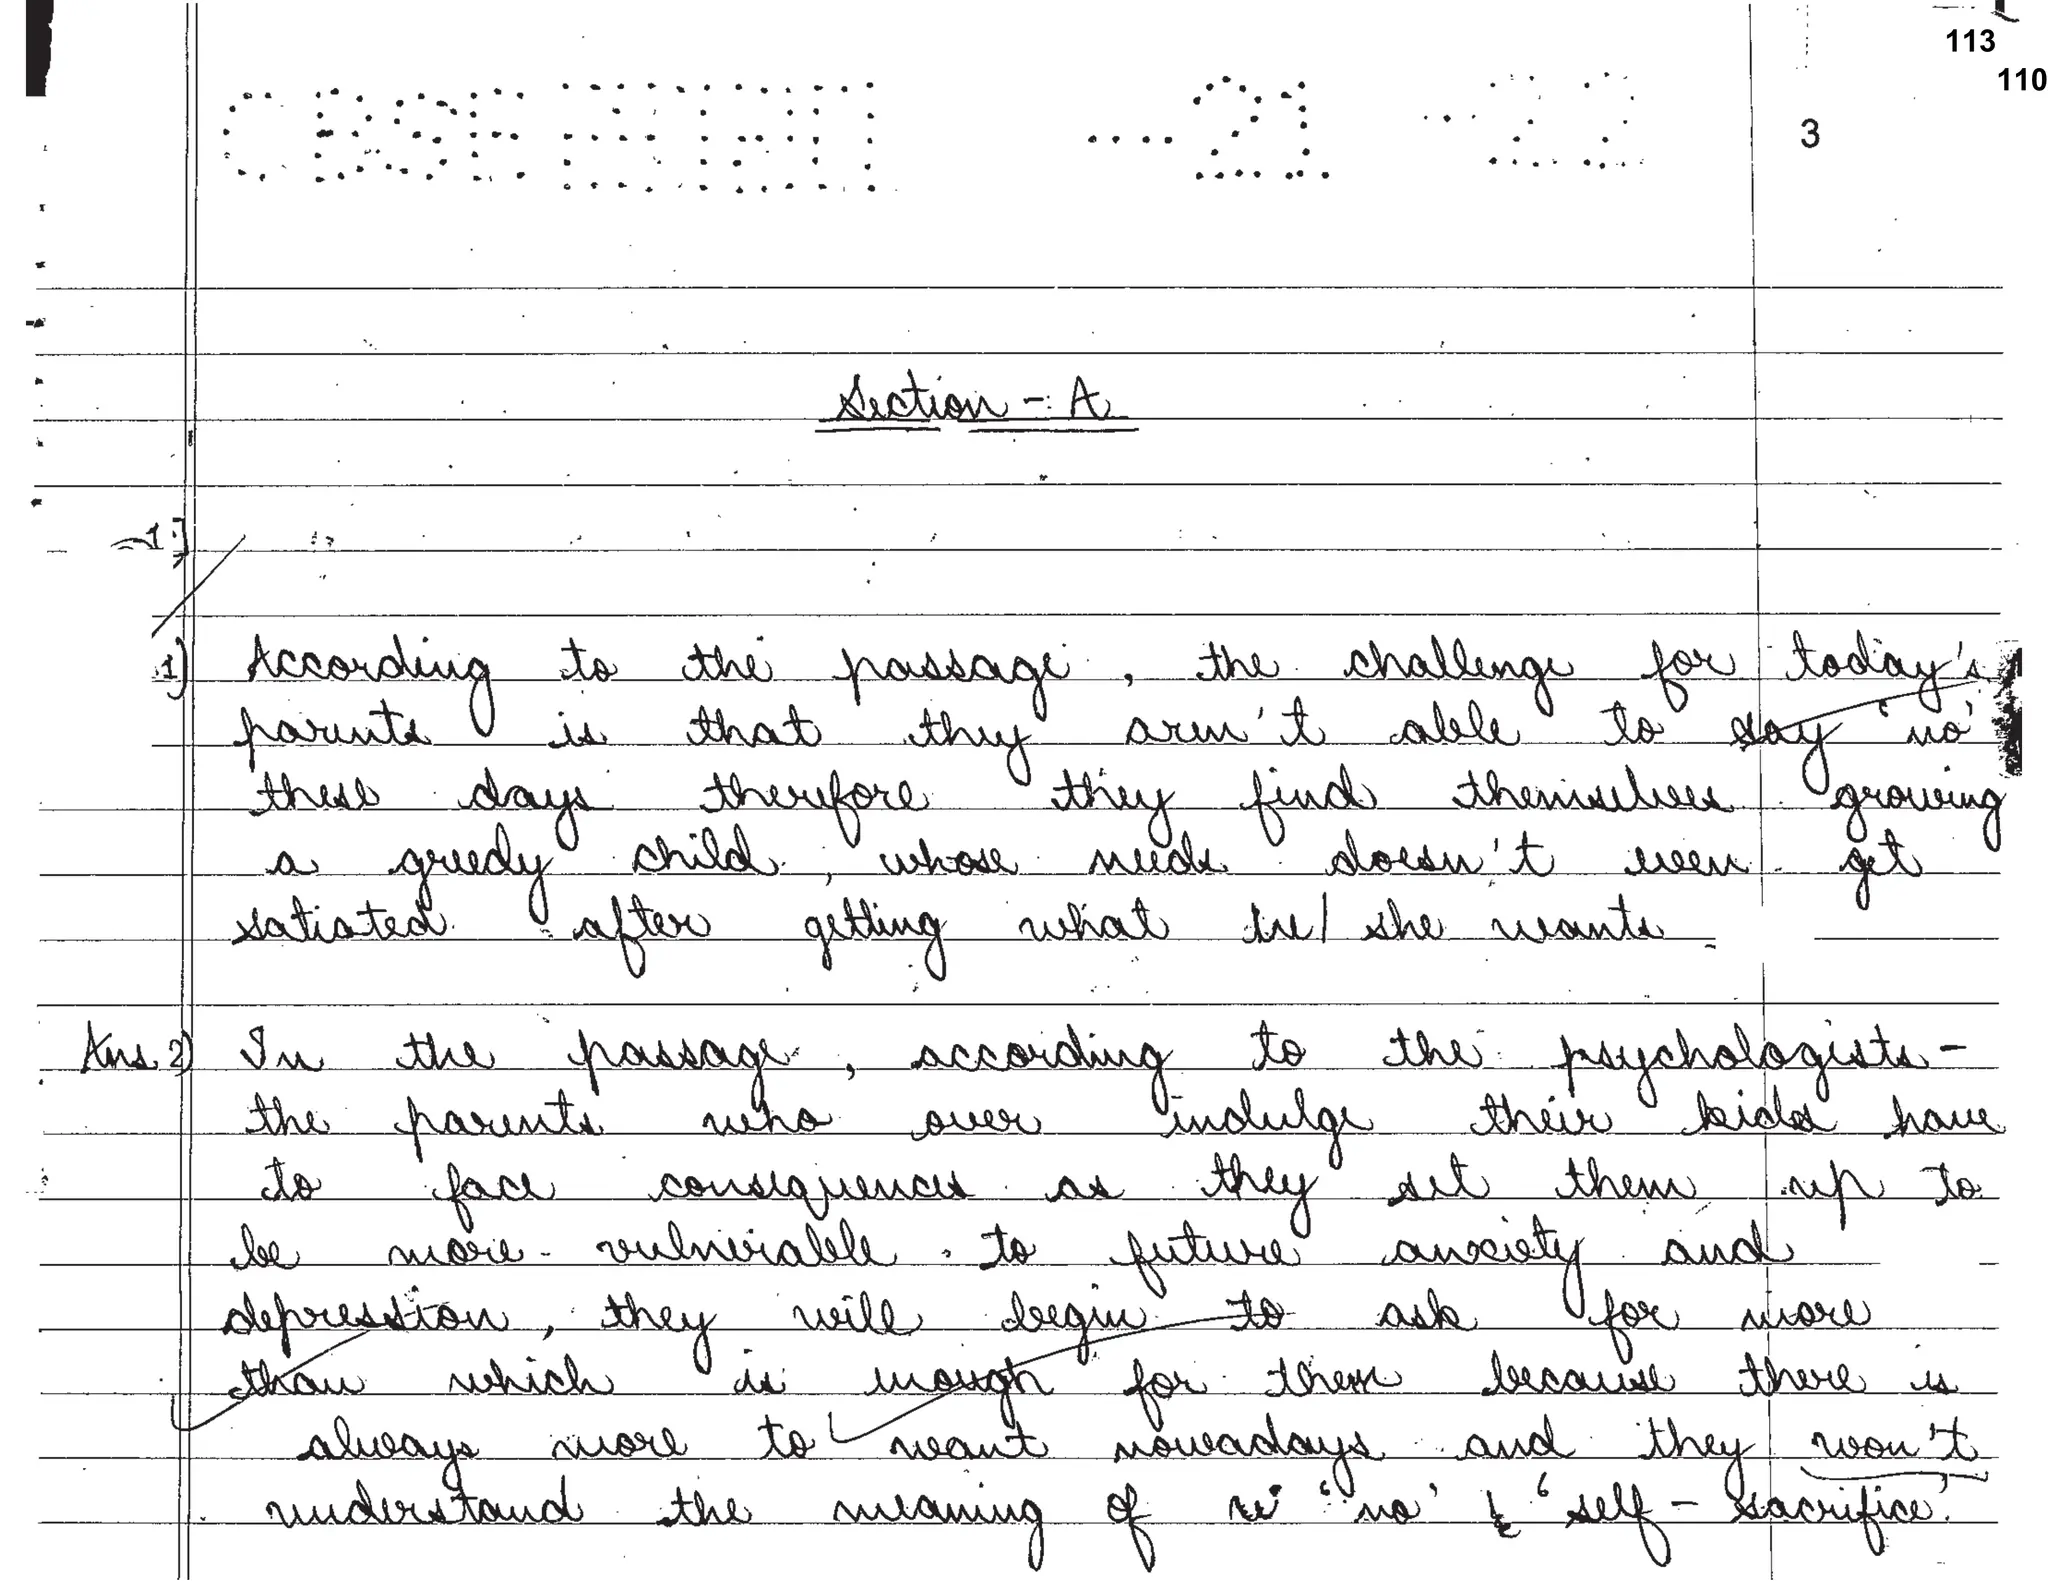 113
110
3
CBSE
21
Section - A
1)
1) According to the passage, the challenge for today's
parents is that they aren't able to say 'no'
these days therefore they find themselves growing
a greedy child, whose needs doesn't even get
satiated after getting what he/she wants.
Ans 2) In the passage, according to the psychologists-
the parents who over indulge their kids have
to face consequences as they set them up to
be more vulnerable to future anxiety and
depression, they will begin to ask for more
than which is enough for them because there is
always more to want nowadays and they won't
understand the meaning of 'no' & 'self-sacrifice'.